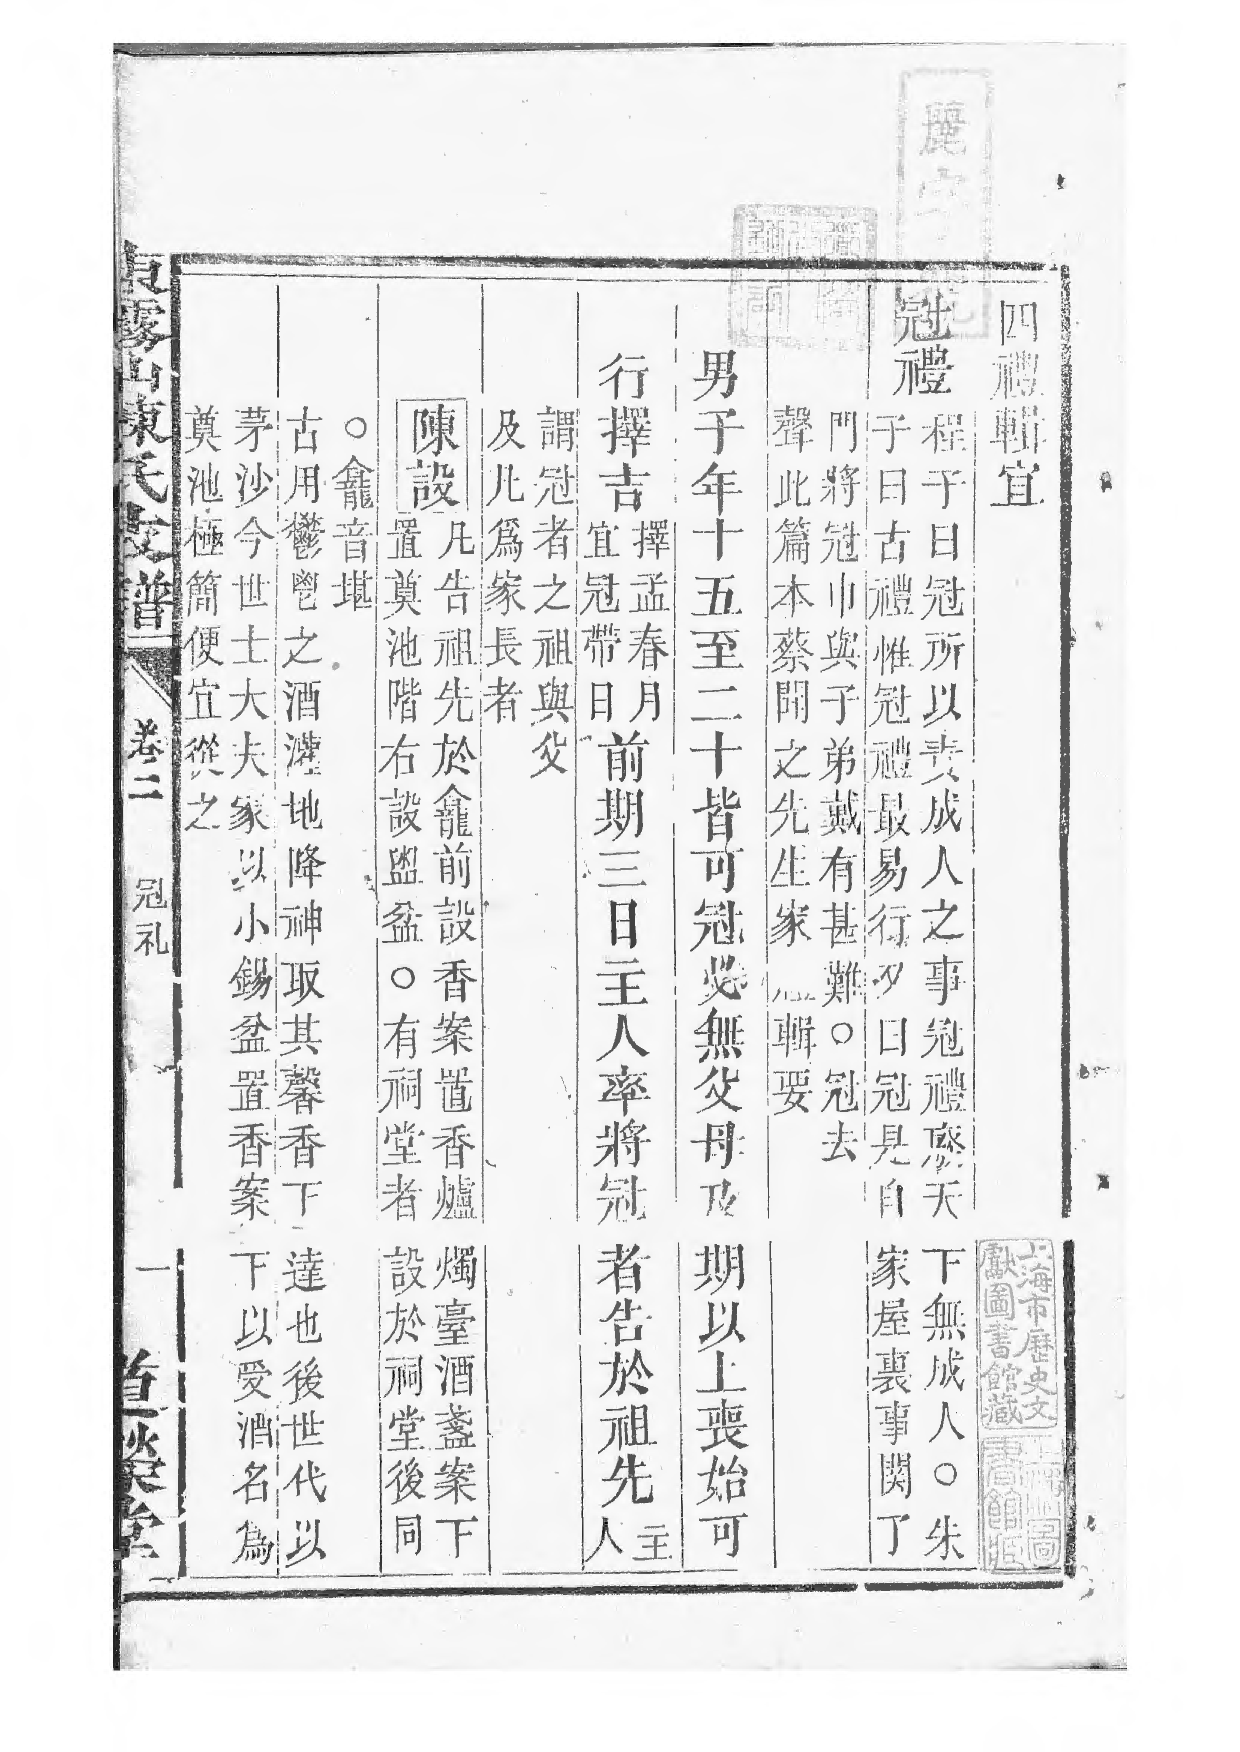 四禮輯宜
冠禮
程子曰冠所以責成人之事冠禮廢天下無成人○朱
子曰古禮惟冠禮最易行又曰冠是自家屋裏事関了
門將冠巾與子弟戴有甚難○冠去
聲此篇本蔡聞之先生家 輯要
男子年十五至二十皆可冠必無父母及期以上喪始可
行擇吉
擇孟春月
宜冠帶日
前期三日主人率將冠者告於祖先
主
人
謂冠者之祖與父
及凡爲家長者
陳設
凡告祖先於龕前設香案置香爐燭臺酒盞案下
置奠池階右設盥盆○有祠堂者設於祠堂後同
○龕音堪
古用鬱鬯之酒灌地降神取其馨香下達也後世代以
茅沙今世士大夫家以小錫盆置香案下以受酒名爲
奠池極簡便宜從之
霧山陳氏支譜
卷二
冠礼
一
道榮堂
上海市歷史文
獻圖書館藏